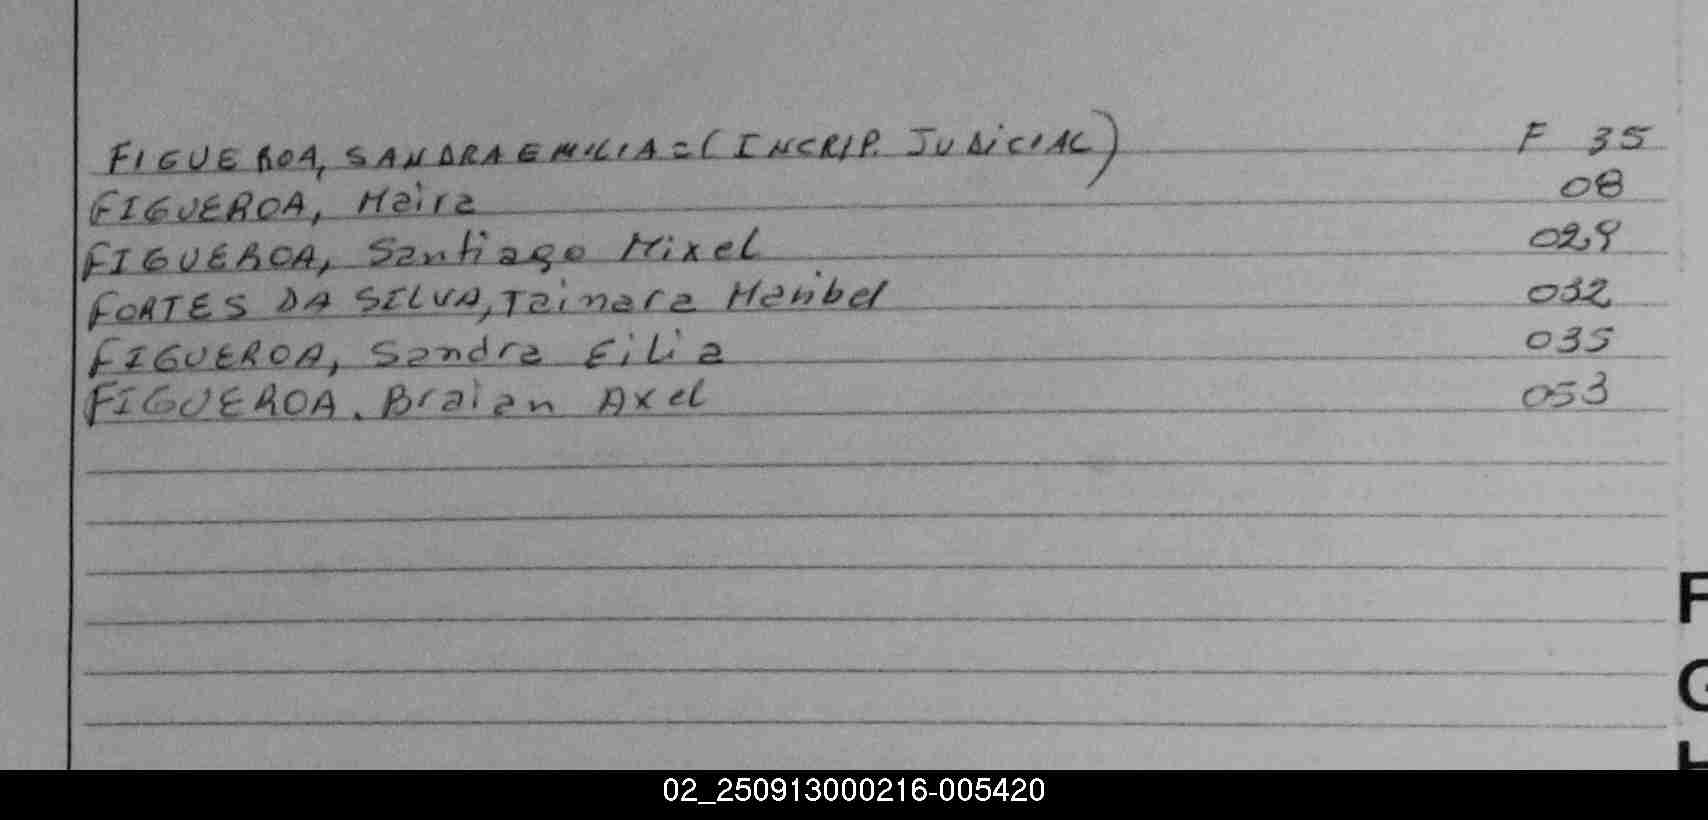 FIGUEROA, SANDRA EMILIA = (INCRIP. JUDICIAL) F 35
FIGUEROA, Maira 08
FIGUEROA, Santiago Mixel 029
FORTES DA SILVA, Tainara Maribel 032
FIGUEROA, Sandra Eilia 035
FIGUEROA. Braian Axel 053
F
G
H
02_250913000216-005420